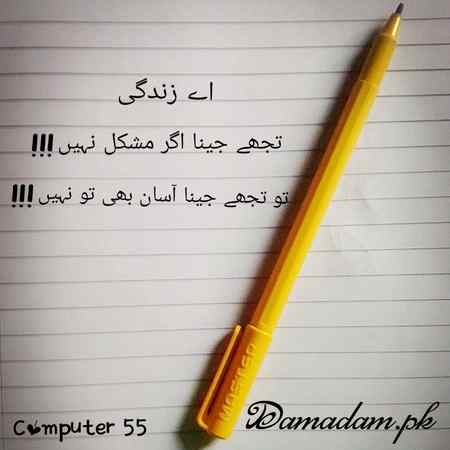 اے زندگی
تجھے جینا اگر مشکل نہیں !!!
تو تجھے جینا آسان بھی تو نہیں !!!
MASTER
Computer 55
Damadam.pk